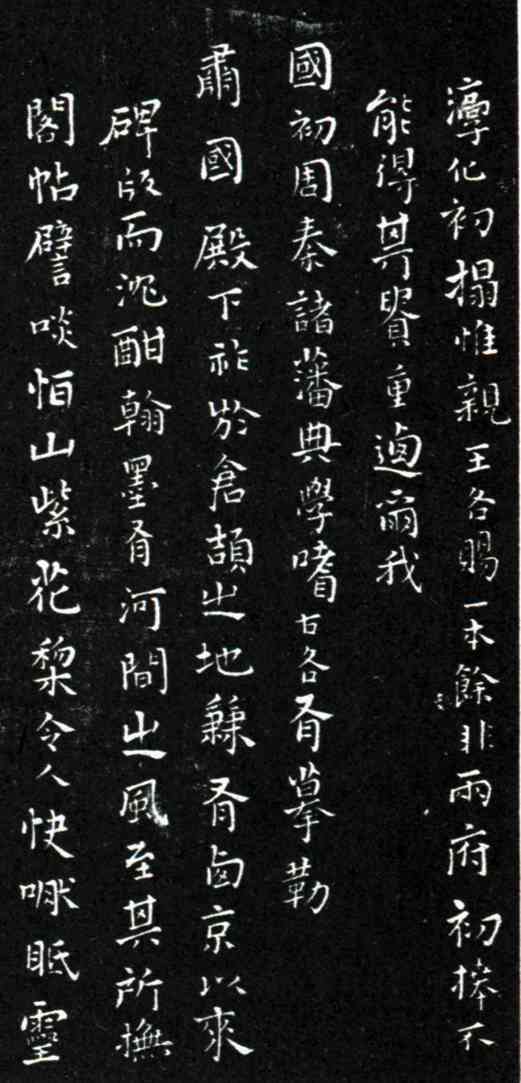 淳化初搨惟親王各賜一本餘非兩府初捧不
能得其貴重迺爾我
國初周秦諸藩典學嗜古各有摹勒
肅國殿下祚於倉頡之地兼有卥京以來
碑版而沉酣翰墨有河間之風至其所撫
閣帖譬啖恒山紫花梨令人快眂靈